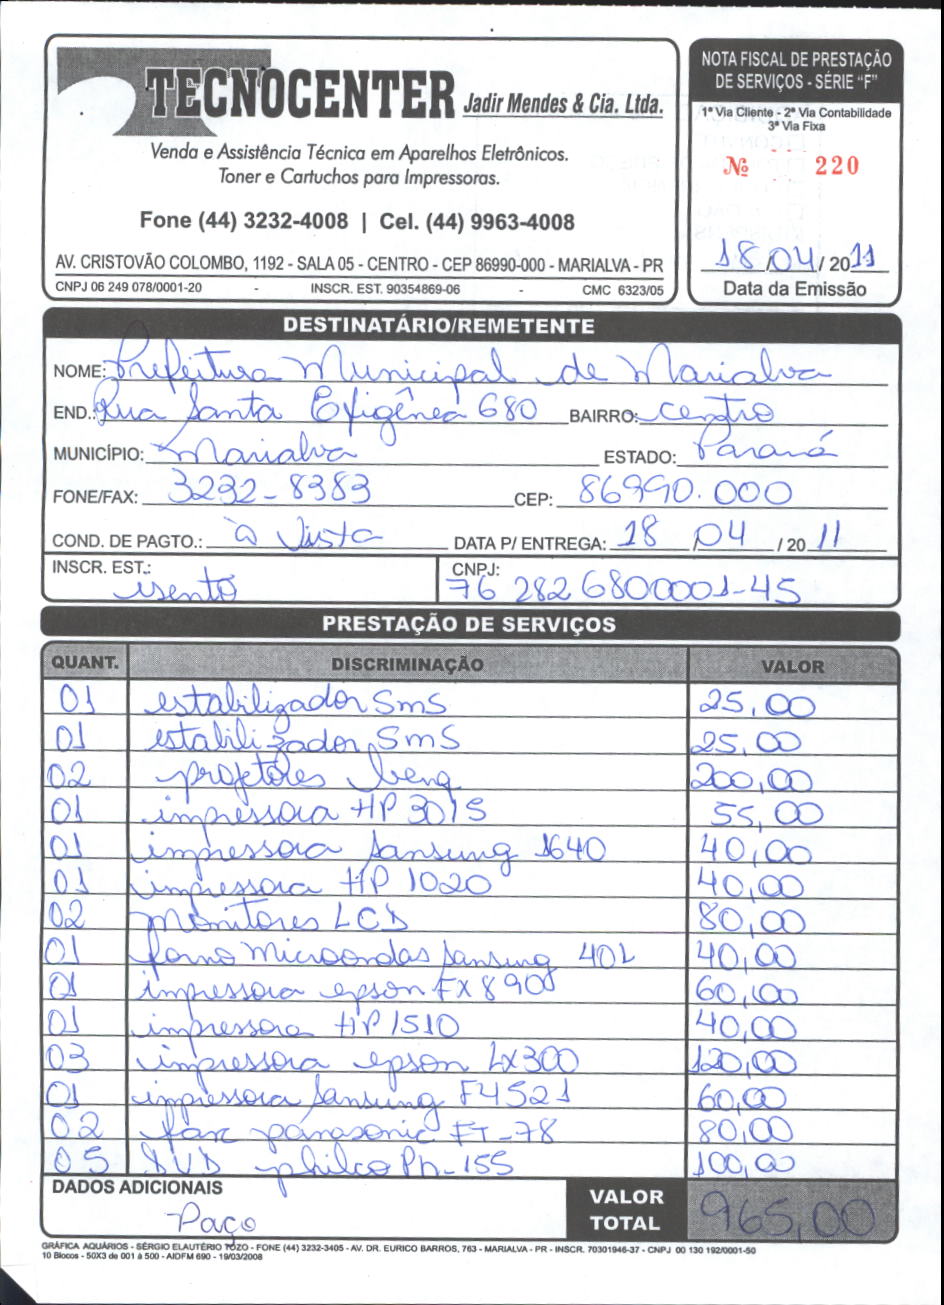 TECNOCENTER Jadir Mendes & Cia. Ltda.
Venda e Assistência Técnica em Aparelhos Eletrônicos.
Toner e Cartuchos para Impressoras.
Fone (44) 3232-4008 | Cel. (44) 9963-4008
AV. CRISTOVÃO COLOMBO, 1192 - SALA 05 - CENTRO - CEP 86990-000 - MARIALVA - PR
CNPJ 06 249 078/0001-20 - INSCR. EST. 90354869-06 - CMC 6323/05
NOTA FISCAL DE PRESTAÇÃO
DE SERVIÇOS - SÉRIE "F"
1ª Via Cliente - 2ª Via Contabilidade
3ª Via Fixa
Nº 220
18/04/2011
Data da Emissão
DESTINATÁRIO/REMETENTE
NOME: Prefeitura Municipal de Marialva
END.: Rua Santa Efigênea 680 BAIRRO: centro
MUNICÍPIO: Marialva ESTADO: Paraná
FONE/FAX: 3232-8383 CEP: 86990.000
COND. DE PAGTO.: à Vista DATA P/ ENTREGA: 18/04/2011
INSCR. EST.: isento CNPJ: 76 282 680 0001-45
PRESTAÇÃO DE SERVIÇOS
QUANT. DISCRIMINAÇÃO VALOR
01 estabilizador SMS 25,00
01 estabilizador SMS 25,00
02 projetores benq 200,00
01 impressora HP 3015 55,00
01 impressora Sansung 1640 40,00
01 impressora HP 1020 40,00
02 Monitores LCD 80,00
01 forno Microondas Sansung 40L 40,00
01 impressora epson FX890 60,00
01 impressora HP 1510 40,00
03 impressora epson LX300 120,00
01 impressora Sansung F4521 60,00
02 fax panasonic FT-78 80,00
05 DVD philco Ph-155 100,00
DADOS ADICIONAIS
Paço
VALOR TOTAL 965,00
GRÁFICA AQUÁRIOS - SÉRGIO ELAUTÉRIO TOZO - FONE (44) 3232-3405 - AV. DR. EURICO BARROS, 763 - MARIALVA - PR - INSCR. 70301946-37 - CNPJ 00 130 192/0001-50
10 Blocos - 50X3 de 001 à 500 - AIDFM 690 - 19/03/2008